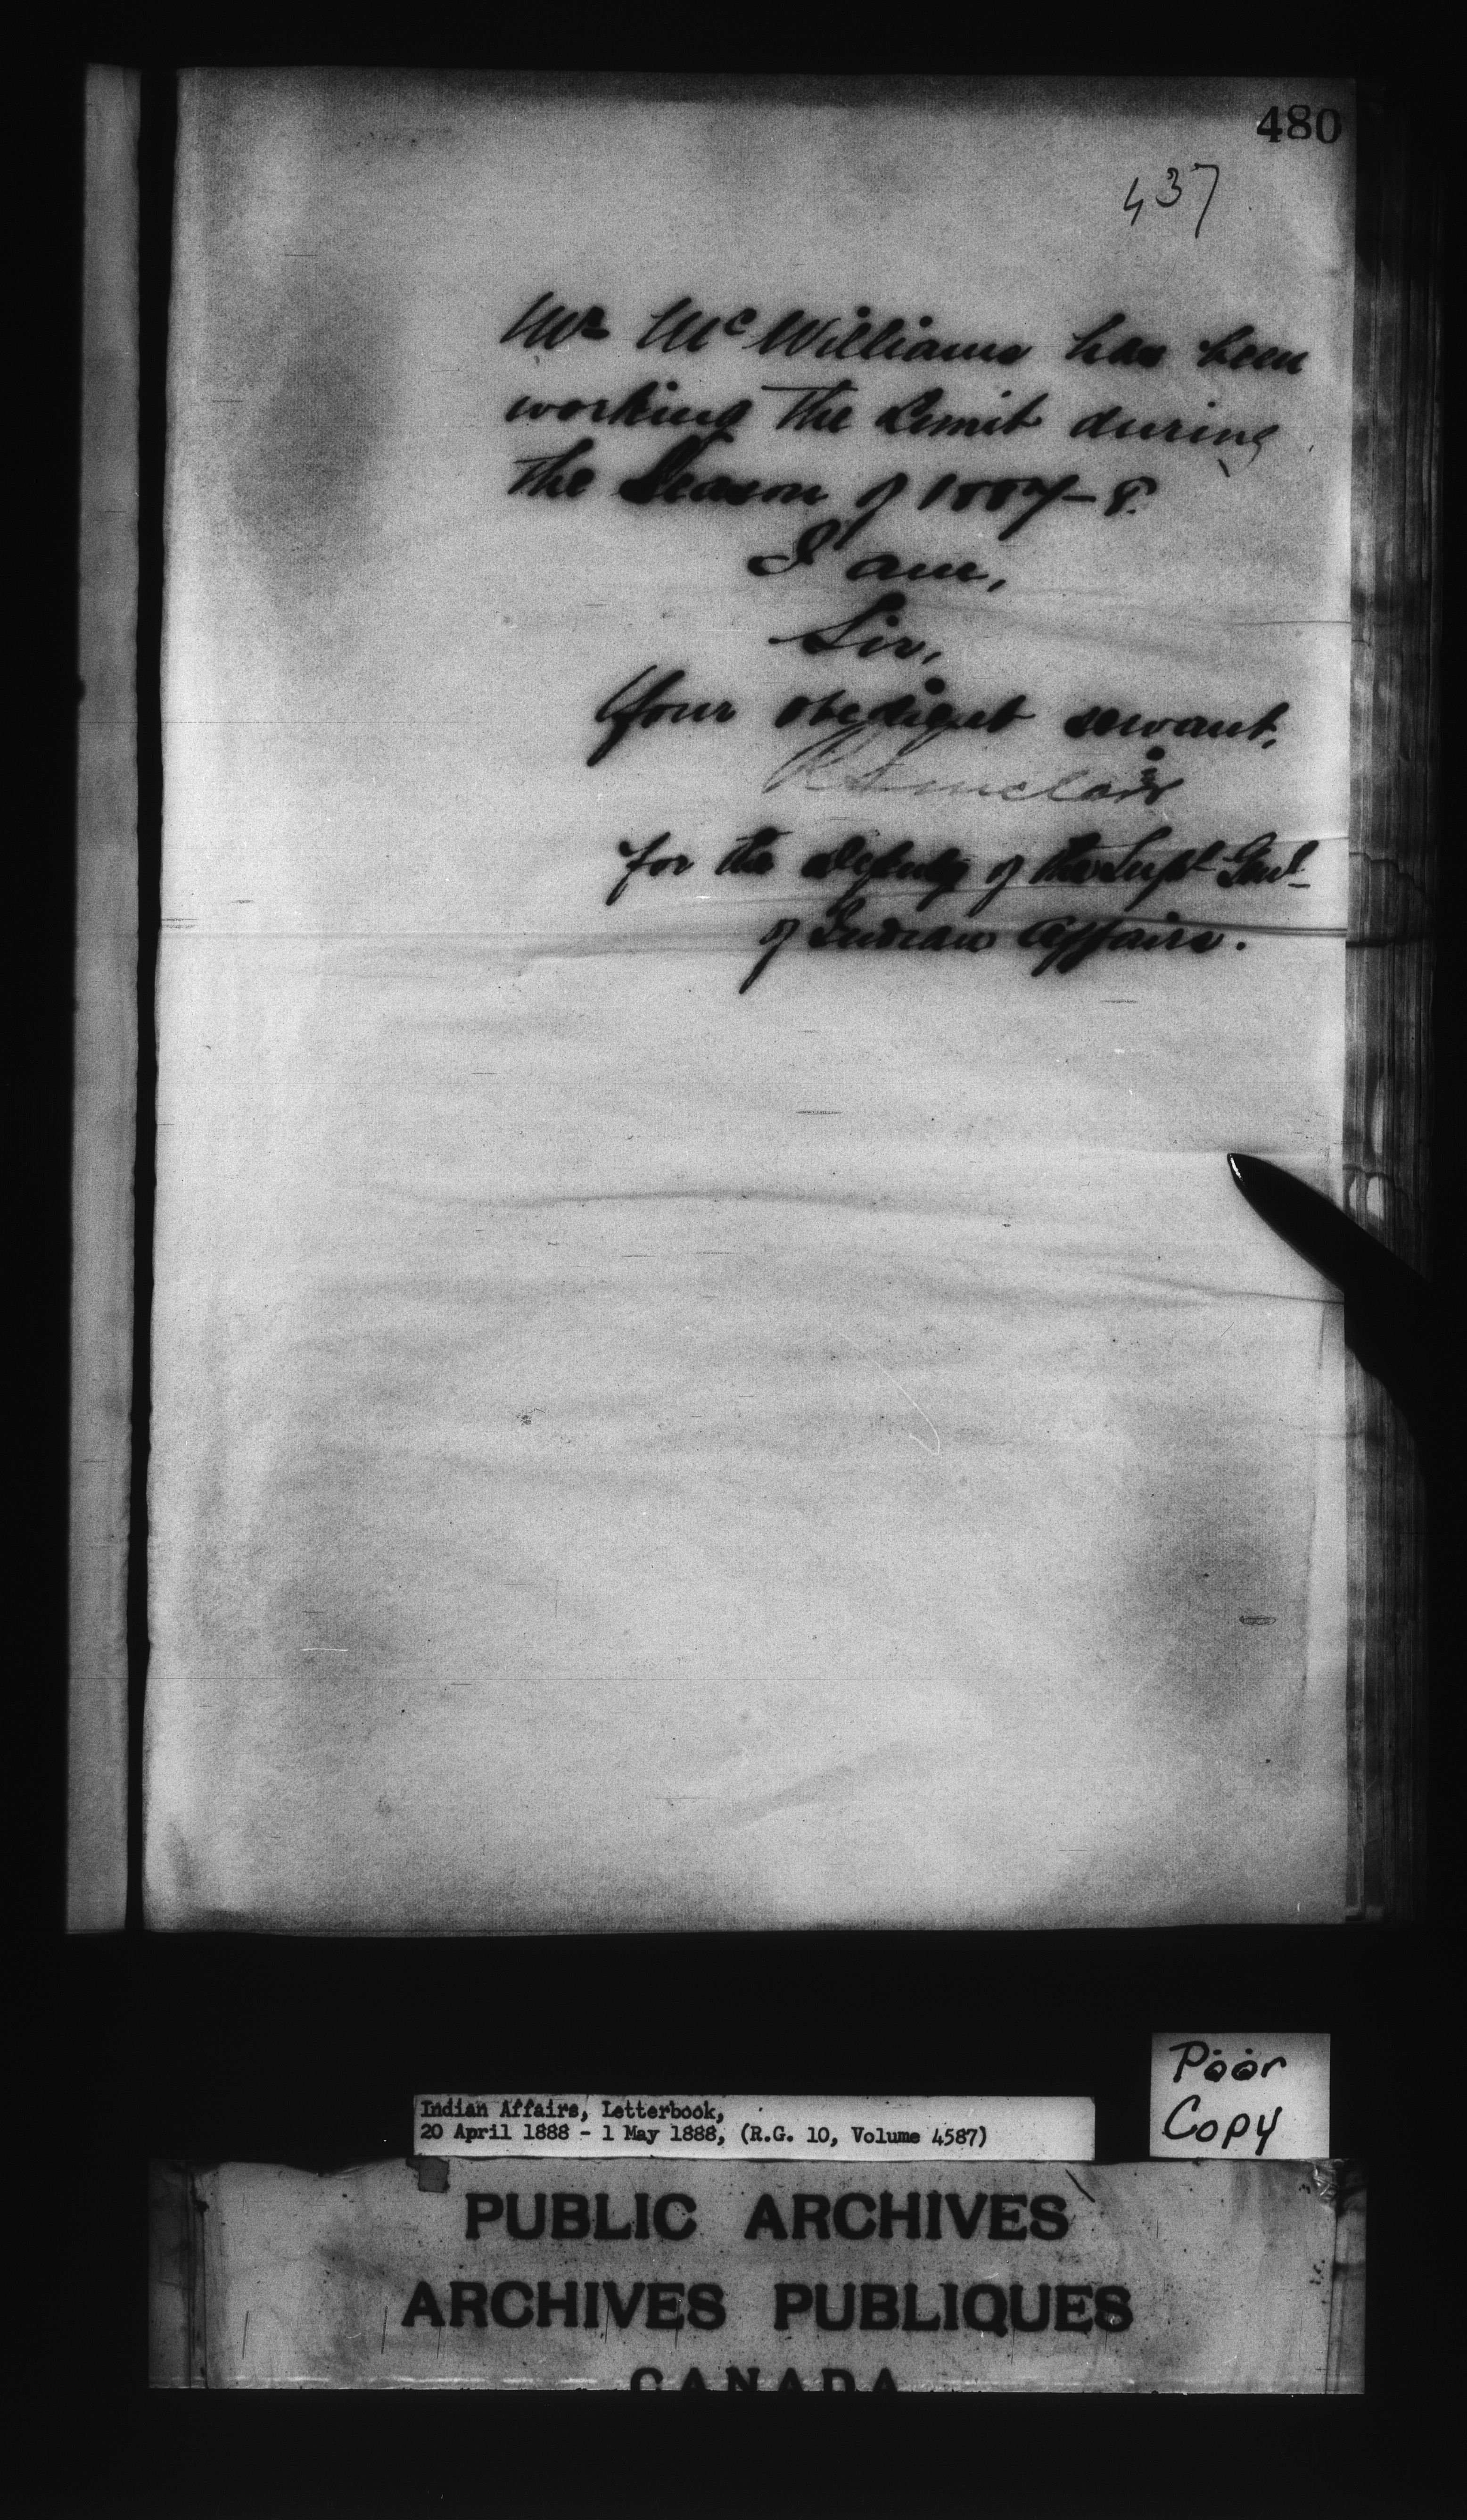 480
437
Mr McWilliams has been
working the Limit during
the Season of 1887-8.
I am,
Sir,
Your obedient servant,
R Sinclair
for the Deputy of the Supt Genl
of Indian Affairs.
Poor
Copy
Indian Affairs, Letterbook,
20 April 1888 - 1 May 1888, (R.G. 10, Volume 4587)
PUBLIC ARCHIVES
ARCHIVES PUBLIQUES
CANADA